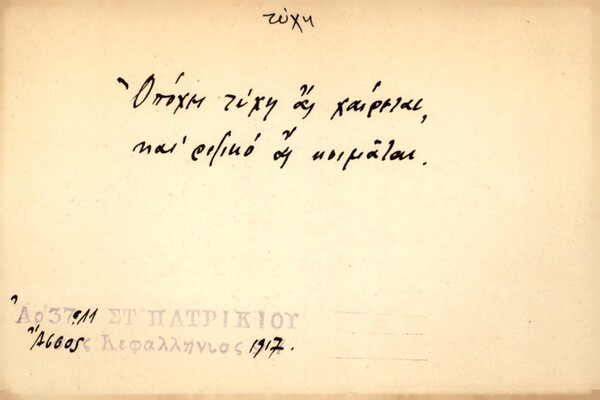 τύχη
Ὁπόχει τύχη ἄς χαίρεται,
καὶ ριζικό ἄς κοιμᾶται.
Ἀρ 37 911 ΣΤ ΠΑΤΡΙΚΙΟΥ
Ἄσσος Κεφαλληνίας 1917.